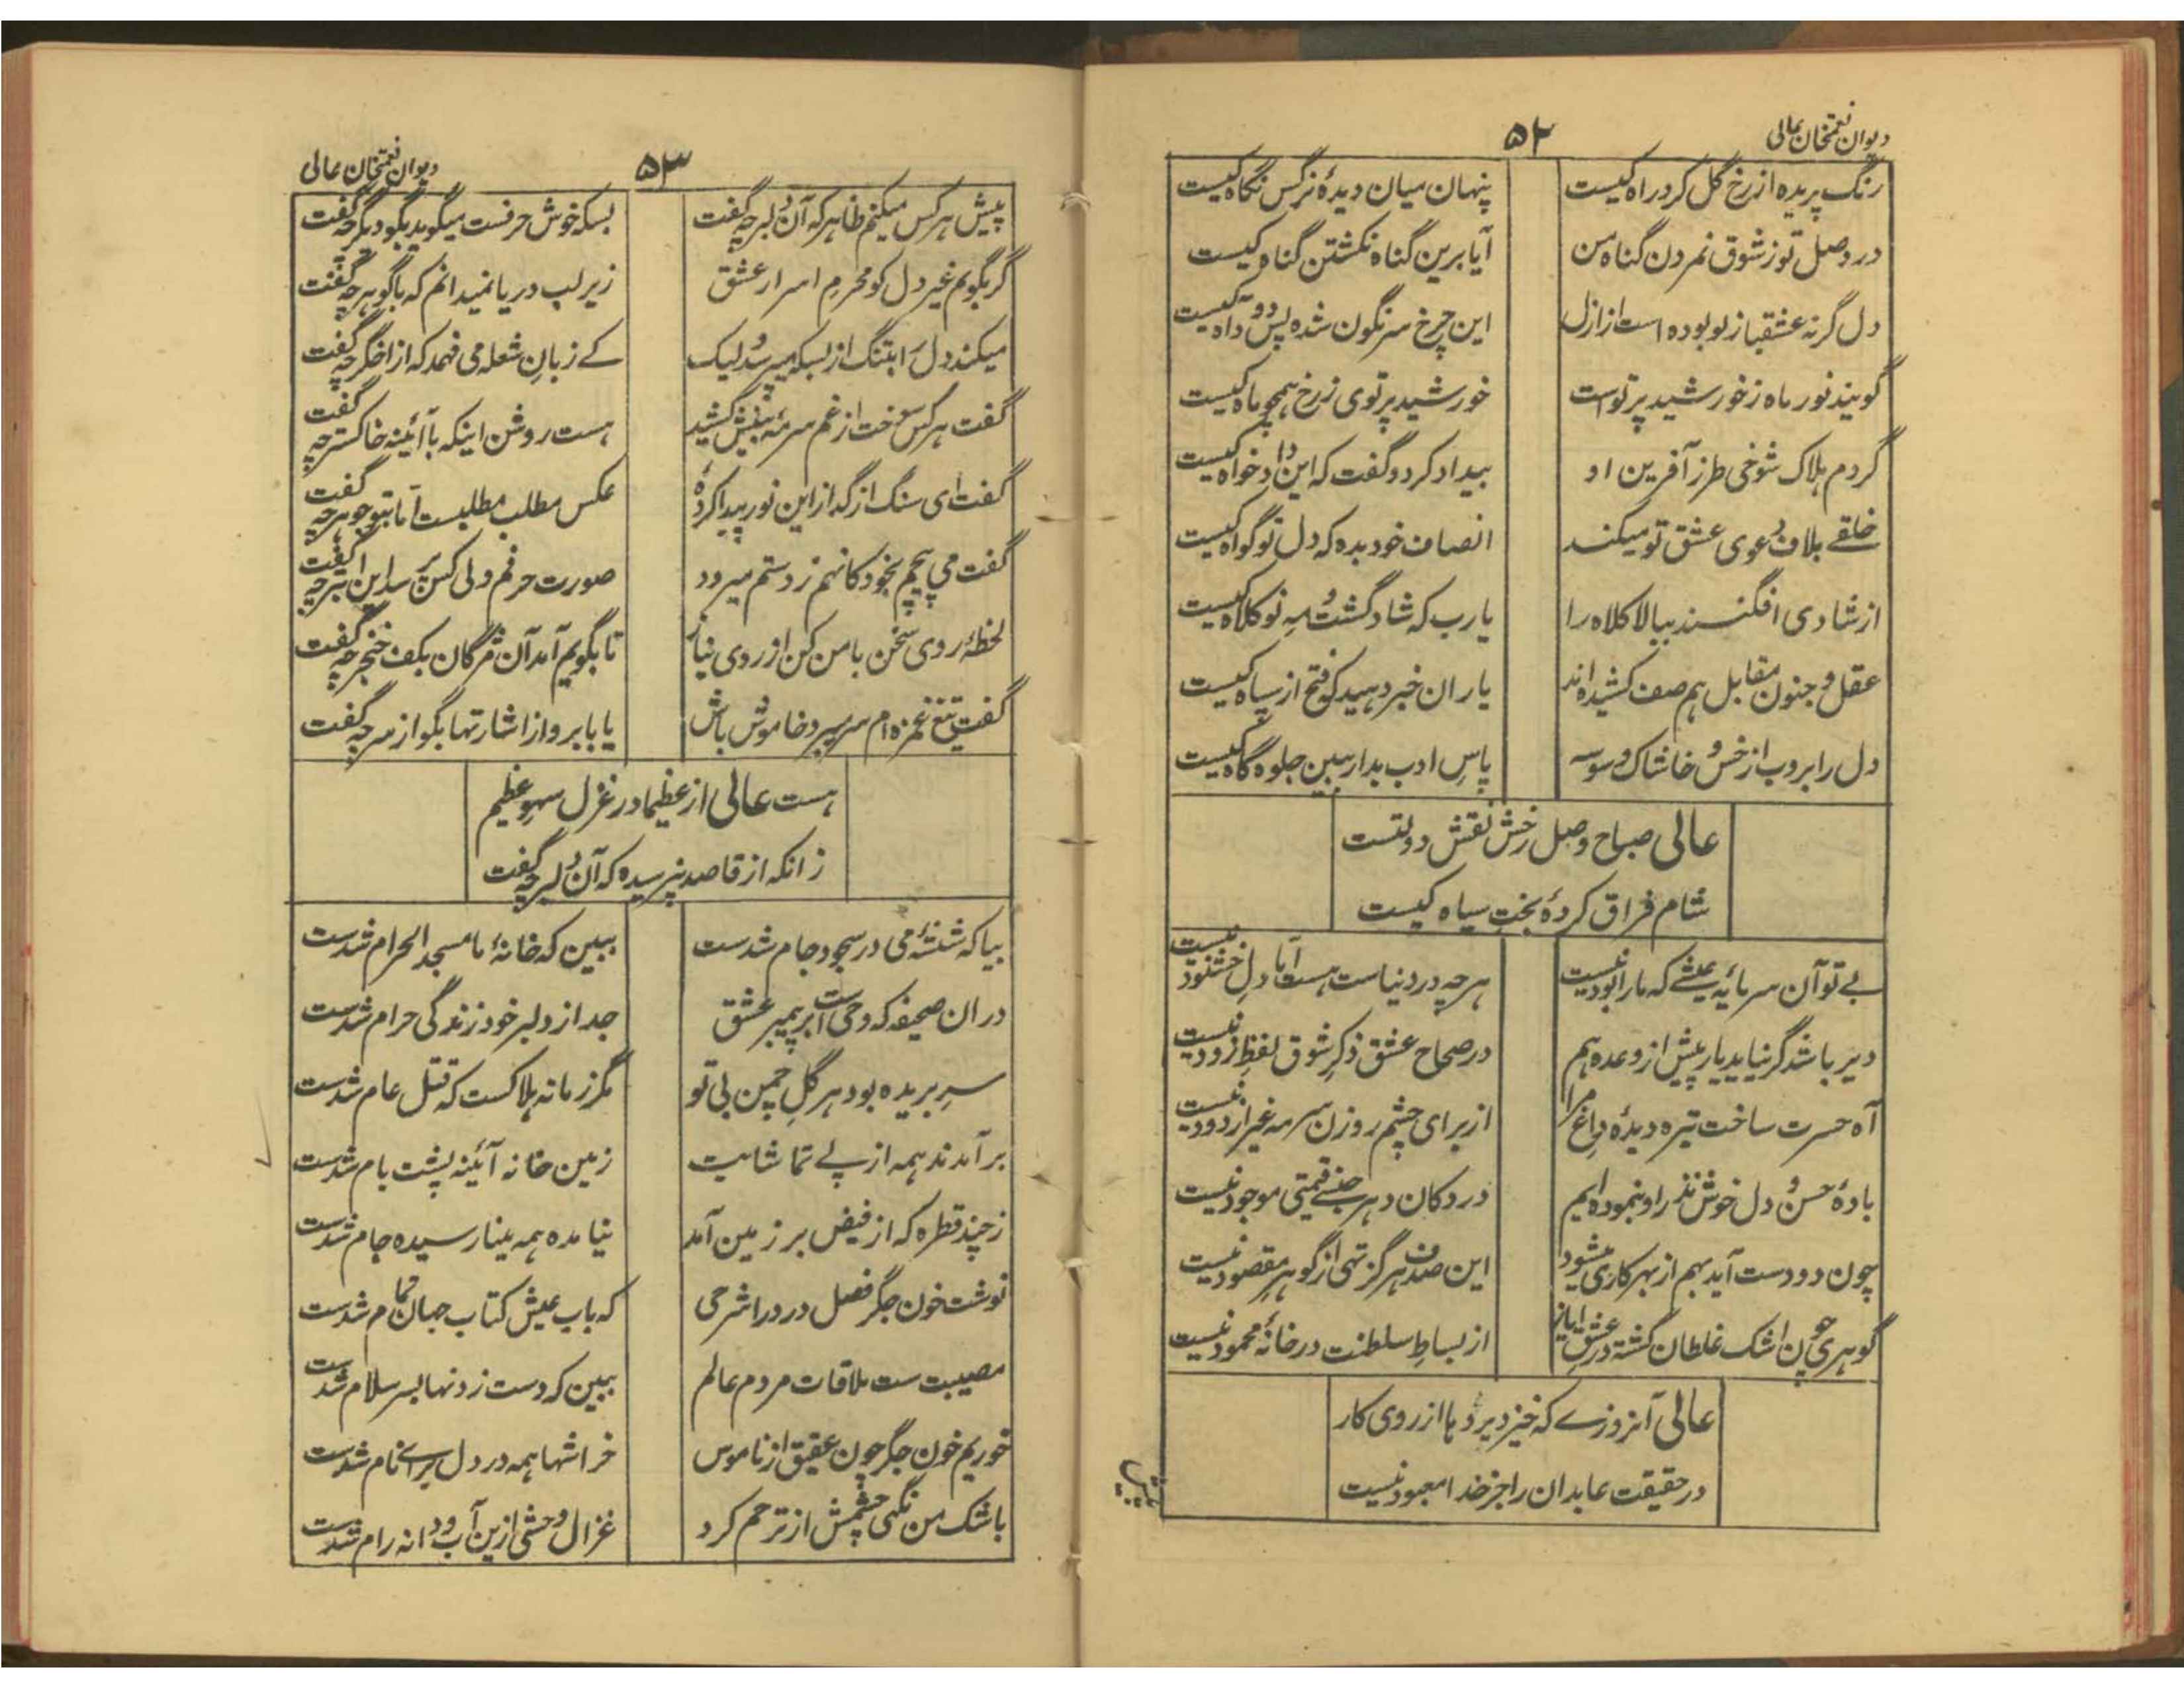 دیوان نعمتخان عالی
۵۲
رنگ پریده از رخ گل گرد راه کیست
پنهان میان دیدهٔ نرگس نگاه کیست
در وصل تو ز شوق نمردن گناه من
آیا برین گناه نکشتن گناه کیست
دل گر نه عشقباز تو بوده است از ازل
این چرخ سرنگون شده پس دود آه کیست
گویند نور ماه ز خورشید پرتو است
خورشید پرتوی ز رخ همچو ماه کیست
گردم هلاک شوخی طرز آفرین او
بیداد کرد و گفت که این دادخواه کیست
خلقے بلاف دعوی عشق تو میکند
انصاف خود بده که دل تو گواه کیست
از شادی افگنند ببالا کلاه را
یارب که شاد گشت و مه نو کلاه کیست
عقل و جنون مقابل هم صف کشیده اند
یاران خبر دهید که فتح از سپاه کیست
دل را بروب از خس و خاشاک وسوسه
پاس ادب بدار ببین جلوه گاه کیست
عالی صباح وصل رخش نقش دولتست
شام فراق کردهٔ بخت سیاه کیست
بے تو آن سرمایهٔ عیشے که ما را بود نیست
هر چه در دنیاست هست اما دل خشنود نیست
دیر باشد گر نیاید یار پیش از وعده هم
در صحاح عشق ذکر شوق لفظ زود نیست
آه حسرت ساخت تیره دیدهٔ داغ مرا
از برای چشم روزن سرمه غیر از دود نیست
بادهٔ حسن و دل خوش نذر او بنموده ایم
در دکان دهر جنسے قیمتی موجود نیست
چون دو دست آید بهم از بهر کاری میشود
این صدف هرگز تهی از گوهر مقصود نیست
گوهری چون اشک غلطان گشته در عشق ایاز
از بساط سلطنت در خانهٔ محمود نیست
عالی آنروزے که خیزد پردها از روی کار
در حقیقت عابدان را جز خدا معبود نیست
پیش
دیوان نعمتخان عالی
۵۳
پیش هر کس میکنم ظاهر که آن دلبر چه گفت
بسکه خوش حرفست میگوید بگو دیگر چه گفت
گر بگویم غیر دل کو محرم اسرار عشق
زیر لب دریا نمیدانم که با گوهر چه گفت
میکند دل را بتنگ از بسکه میپرسد لیک
کے زبان شعله می فهمد که از اخگر چه گفت
گفت هر کس سوخت از غم سرمهٔ بینش کشید
هست روشن اینکه با آئینه خاکستر چه گفت
گفت ای سنگ از گداز این نور پیدا کردهٔ
عکس مطلب مطلبست اما بتو جوهر چه گفت
گفت می پیچم بخود کانهم ز دستم میرود
صورت حرفم ولی کس پرسد این ابتر چه گفت
لحظهٔ روی سخن با من کن از روی نیاز
تا بگویم آمد آن مژگان بکف خنجر چه گفت
گفت تیغ غمزه ام سر میبرد خاموش باش
یا بابرو از اشارتها بگو از سر چه گفت
هست عالی از عظیما در غزل سهو عظیم
زانکه از قاصد نپرسیده که آن دلبر چه گفت
بیا که شیشهٔ می در سجود جام شدست
ببین که خانهٔ ما مسجد الحرام شدست
دران صحیفه که وحی است بر پیمبر عشق
جدا ز دلبر خود زندگی حرام شدست
سر بریده بود هر گل چمن بی تو
مگر زمانه هلاکست که قتل عام شدست
برآمدند همه از پے تماشایت
زمین خانه آئینه پشت بام شدست
ز چند قطره که از فیض بر زمین آمد
نیامده همه مینا رسیده جام شدست
نوشت خون جگر فصل درد را شرحی
که باب عیش کتاب جهان تمام شدست
مصیبت ست ملاقات مردم عالم
ببین که دست زدنها بسر سلام شدست
خوریم خون جگر چون عقیق از ناموس
خراشها همه در دل برائے نام شدست
باشک من نگهی چشمش از ترحم کرد
غزال وحشی ازین آب و دانه رام شدست